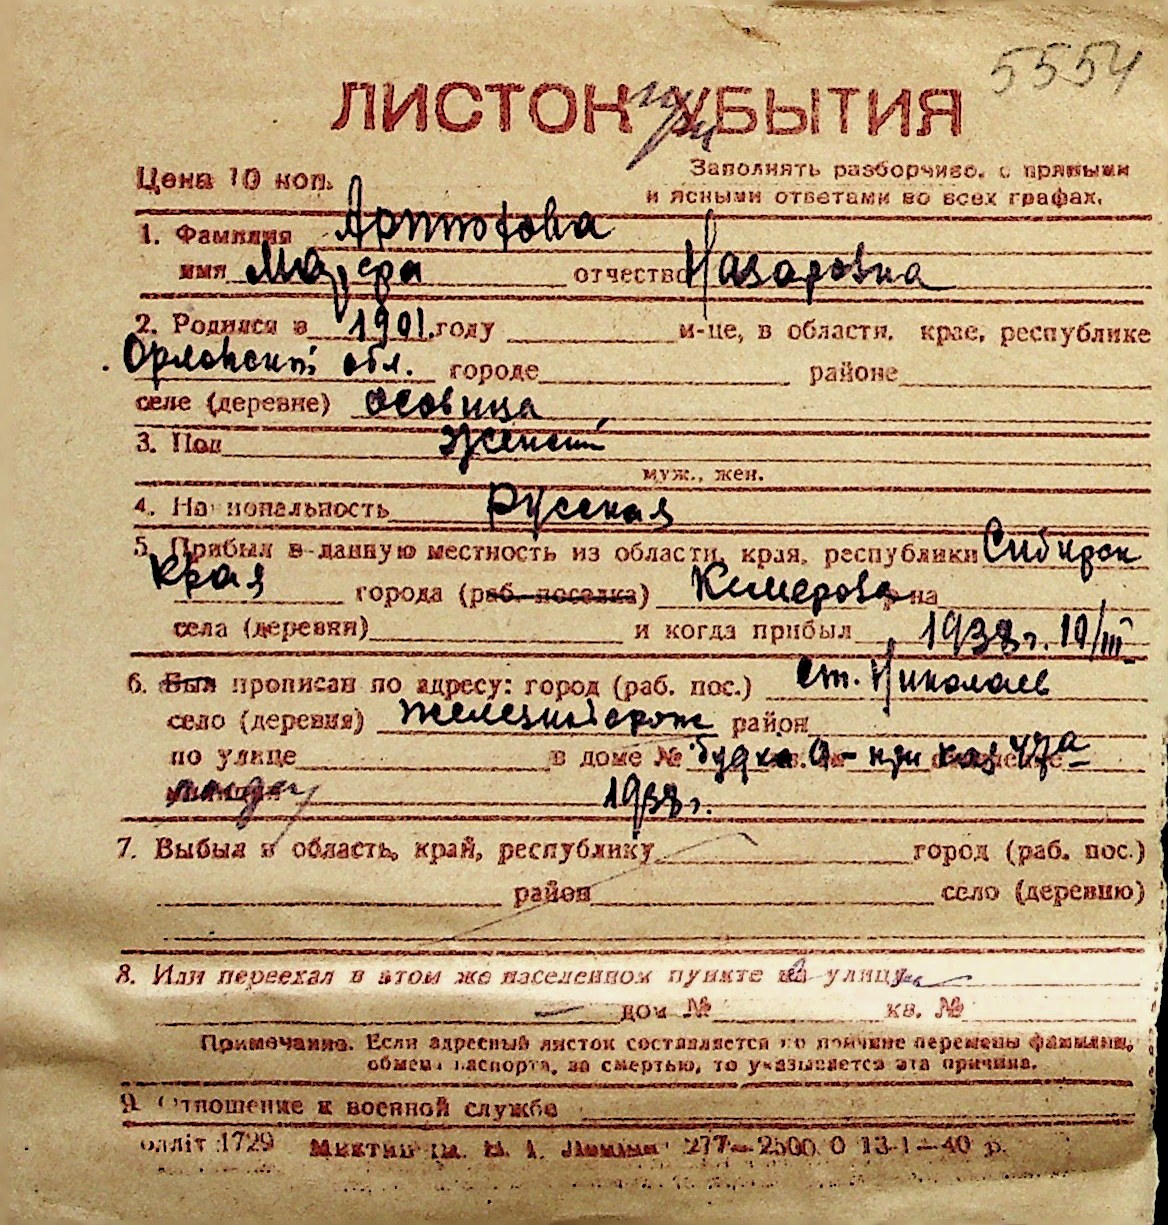 5554
ЛИСТОК УБЫТИЯ
при
Цена 10 коп.
Заполнять разборчиво, с прямыми
и ясными ответами во всех графах.
1. Фамилия
имя отчество Назаровна
2. Родился в 1901 году м-це, в области, крае, республике
Орловский обл. городе районе
селе (деревне) Осовица
3. Пол Женский
муж., жен.
4. Национальность Русская
5. Прибыл в данную местность из области, края, республики Сибирск
края города (раб. поселка) Кемерова на
села (деревни) и когда прибыл 1938 г. 10/III
6. Был прописан по адресу: город (раб. пос.) ст. Николаев
село (деревня) район
по улице в доме № будка
1938 г.
7. Выбыл в область, край, республику город (раб. пос.)
район село (деревню)
8. Или переехал в этом же населенном пункте на улицу
дом № кв. №
Примечание. Если адресный листок составляется по причине перемены фамилии,
обмена паспорта, за смертью, то указывается эта причина.
9. Отношение к военной службе
1729 277—2500 0 13-1—40 р.